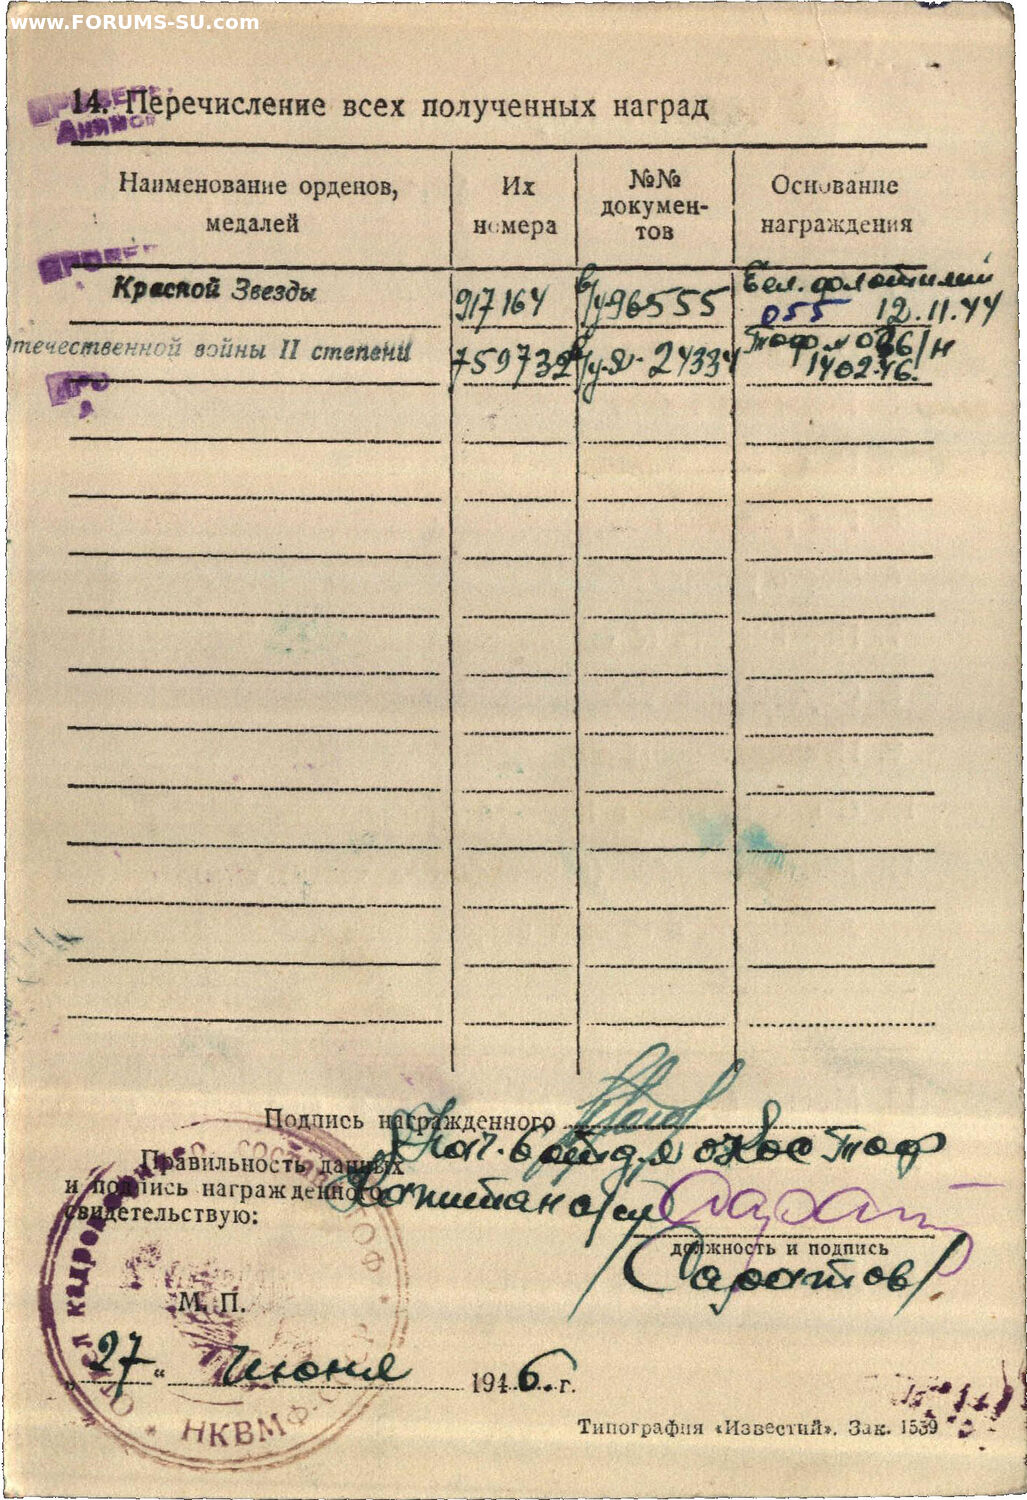 www.FORUMS-SU.com
14. Перечисление всех полученных наград
Наименование орденов, медалей
Их номера
№№ докумен-
тов
Основание награждения
Красной Звезды 917164 в/у 96555 Бел. флотилии
055 12.11.44
Отечественной войны II степени 759732 24334 Тоф 
14.02.46.
Подпись награжденного
Правильность данных
и подпись награжденного
свидетельствую:
Нач. ТОФ
Капитан
должность и подпись
Саратов
М. П.
„27“ Июня 1946. г.
НКВМФ
Типография «Известий». Зак. 1539